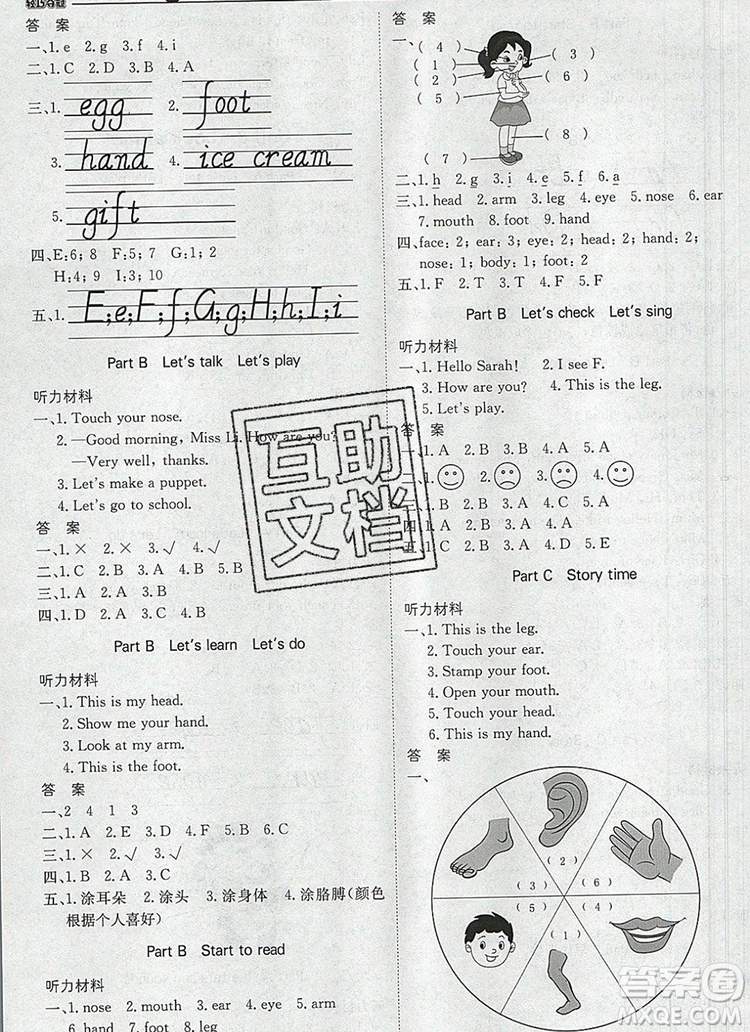 轻巧夺冠
答 案
一、1. e 2. g 3. f 4. i
二、1. C 2. D 3. B 4. A
三、1. egg 2. foot
3. hand 4. ice cream
5. gift
四、E:6; 8 F:5; 7 G:1; 2
H:4; 9 I:3; 10
五、1. E;eF;fG;gH;hI;i
Part B Let's talk Let's play
听力材料
一、1. Touch your nose.
2. —Good morning, Miss Li. How are you?
—Very well, thanks.
3. Let's make a puppet.
4. Let's go to school.
答 案
一、1. × 2. × 3. √ 4. √
二、1. A 2. B 3. A
三、1. B 2. A 3. B
四、1. D 2. A 3. C 4. B
Part B Let's learn Let's do
听力材料
一、1. This is my head.
2. Show me your hand.
3. Look at my arm.
4. This is the foot.
答 案
一、2 4 1 3
二、1. A 2. E 3. D 4. F 5. B 6. C
三、1. × 2. √ 3. √
四、1. B 2. A 3. B
五、1. 涂耳朵 2. 涂头 3. 涂身体 4. 涂胳膊(颜色
根据个人喜好)
Part B Start to read
听力材料
一、1. nose 2. mouth 3. eye 4. arm
5. hand 6. ear 7. foot 8. leg
答 案
一、
( 4 )
( 1 )
( 2 )
( 5 )
( 3 )
( 6 )
( 8 )
( 7 )
二、1. h 2. g 3. i 4. e 5. f 6. a
三、1. head 2. arm 3. leg 4. eye 5. nose 6. ear
7. mouth 8. foot 9. hand
四、face: 2; ear: 3; eye: 2; head: 2; hand: 2;
nose: 1; body: 1; foot: 2
五、1. F 2. T 3. T 4. F
Part B Let's check Let's sing
听力材料
一、1. Hello Sarah! 2. I see F.
3. How are you? 4. This is the leg.
5. Let's play.
答 案
一、1. A 2. B 3. B 4. A 5. A
二、1. 2. 3. 4.
三、1. B 2. A 3. B 4. A
四、1. A 2. B 3. A 4. A
五、1. B 2. C 3. A 4. D 5. E
Part C Story time
听力材料
一、1. This is the leg.
2. Touch your ear.
3. Stamp your foot.
4. Open your mouth.
5. Touch your head.
6. This is my hand.
答 案
一、
( 2 )
( 3 ) ( 6 )
( 5 ) ( 4 )
( 1 )
互助
文档
答案圈
MXQE.COM